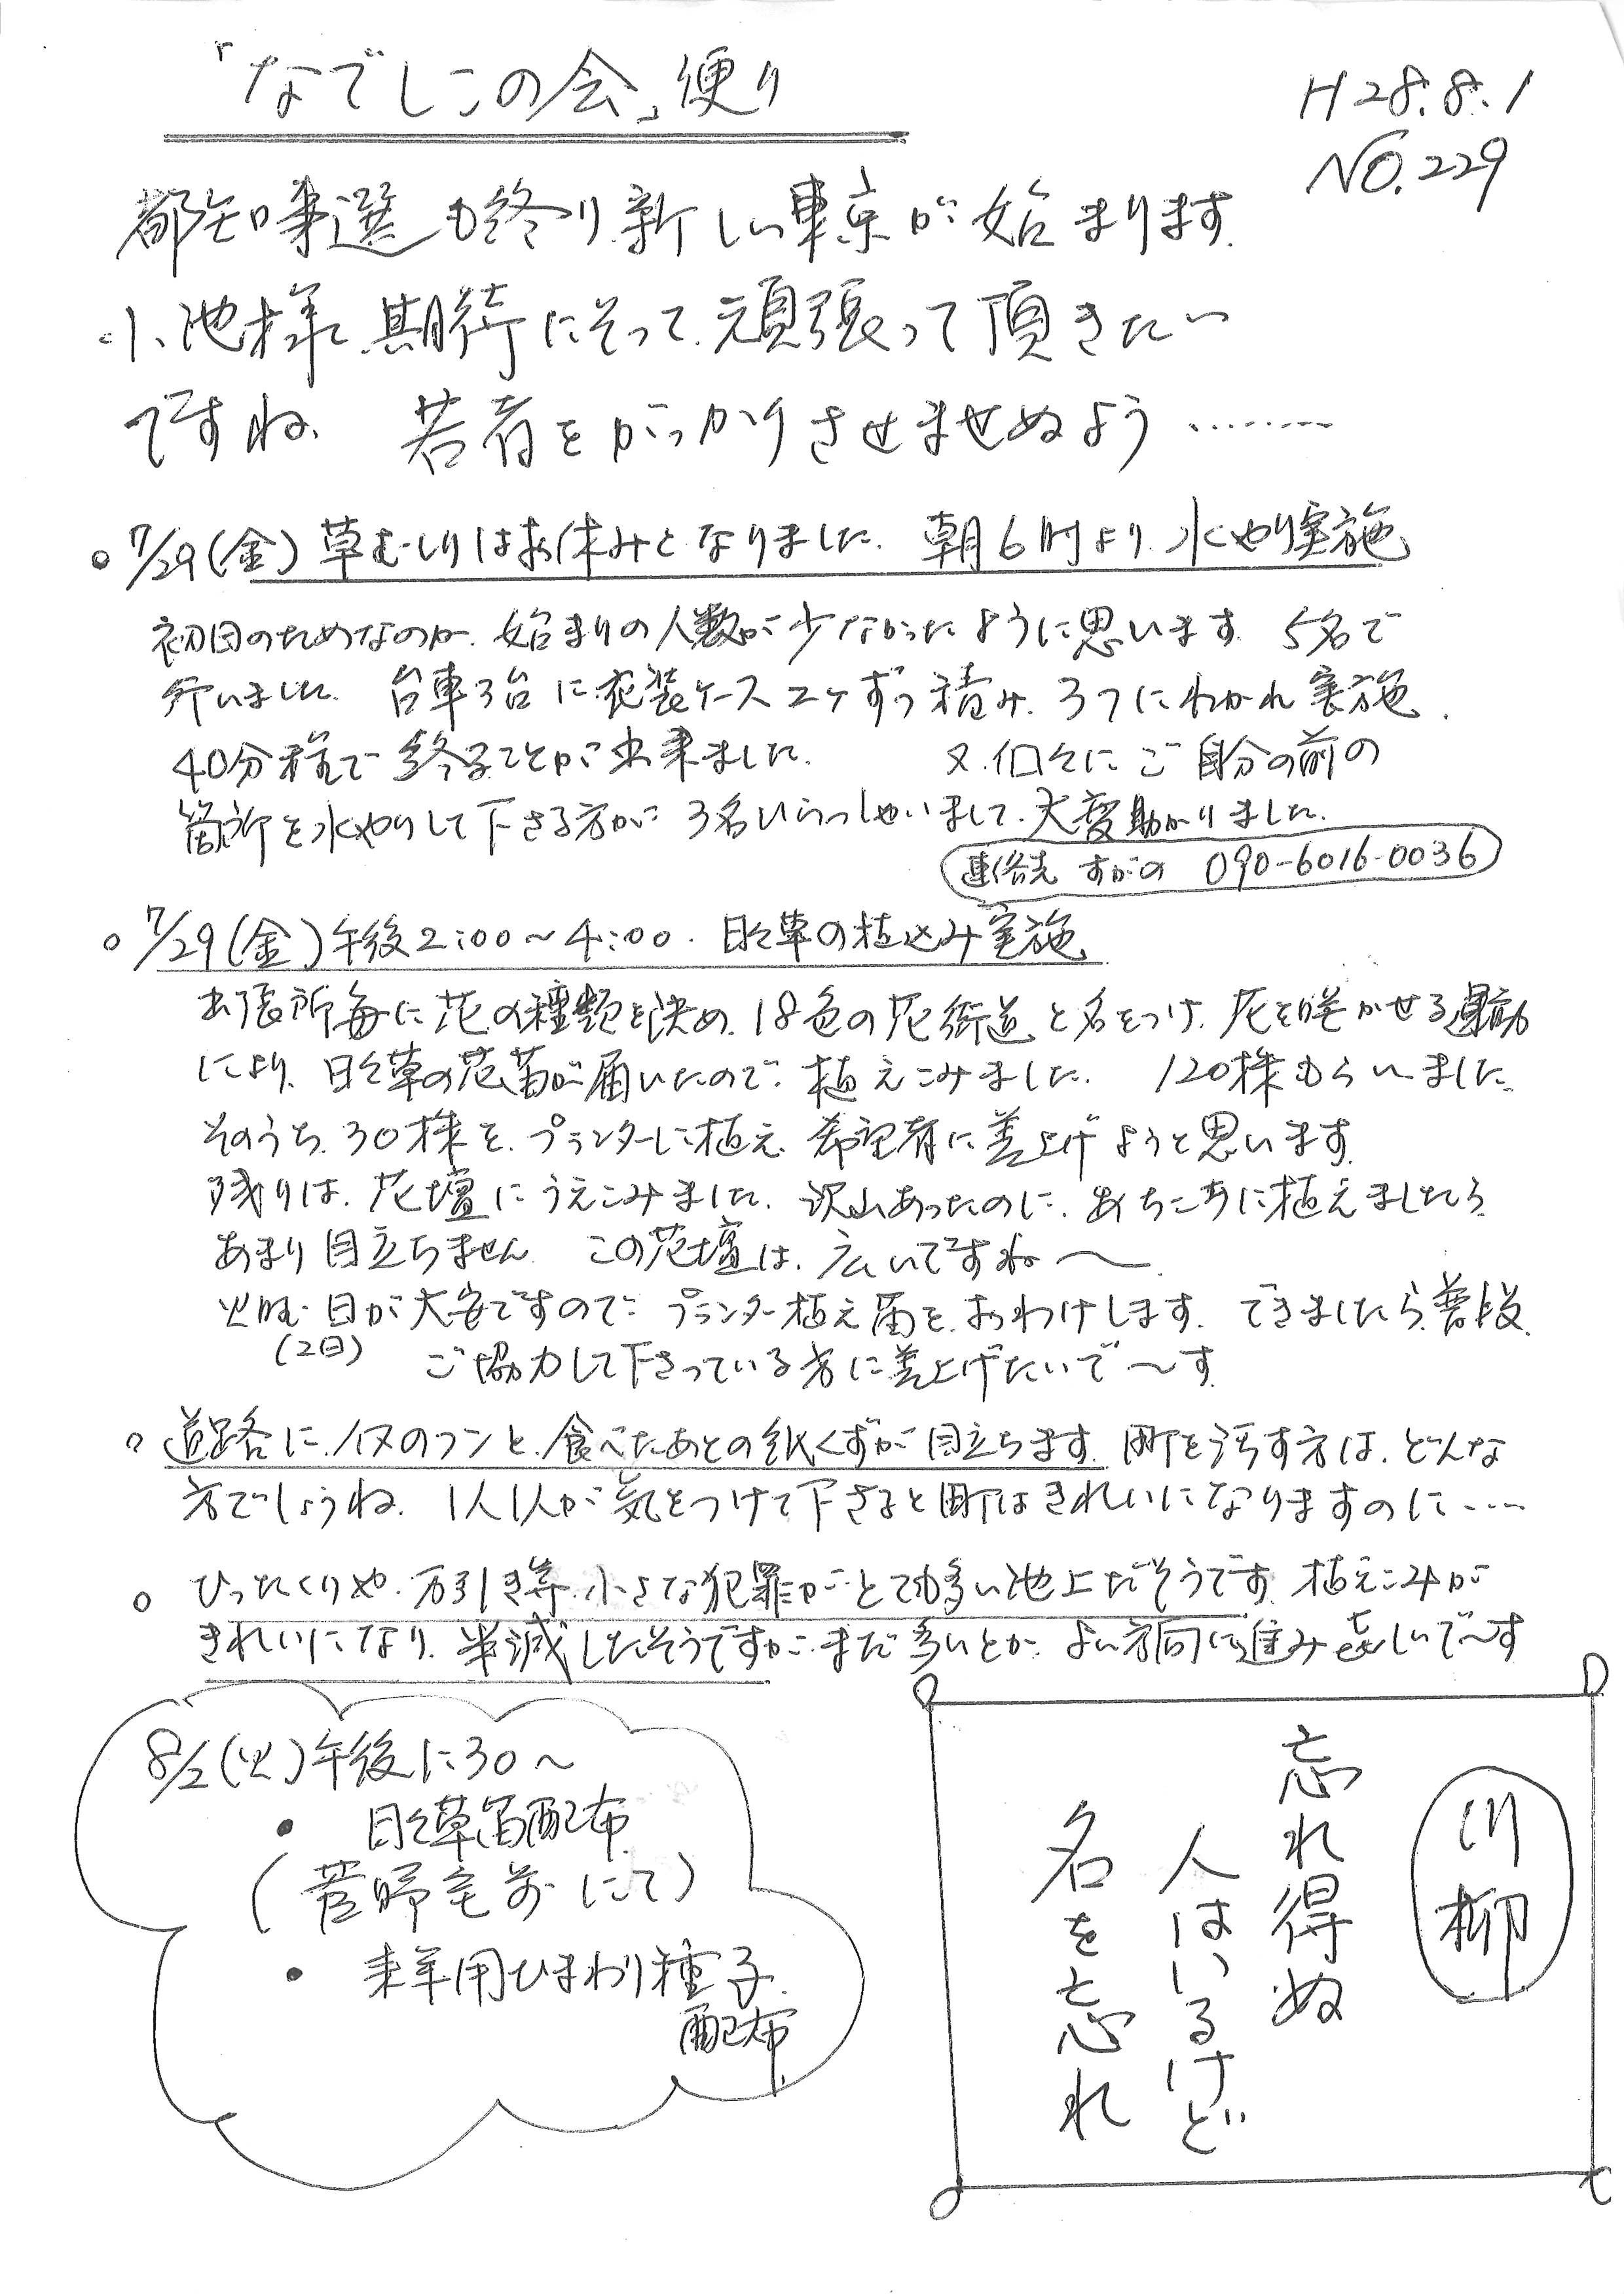 「なでしこの会」便り
H28.8.1
NO.229
都知事選も終り新しい東京が始まります。
小池様、期待にそって頑張って頂きたい
ですね、若者をがっかりさせませぬよう………
○7/29(金)草むしりはお休みとなりました。朝6時より水やり実施
初回のためなのか、始まりの人数が少なかったように思います。5名で
行いました。台車3台に衣装ケース2ケずつ積み、3つにわかれ実施。
40分程で終ることが出来ました。又、個々にご自分の前の
箇所を水やりして下さる方が3名いらっしゃいまして、大変助かりました。
連絡先 すがの 090-6016-0036
○7/29(金)午後2:00~4:00.日々草の植込み実施
出張所毎に花の種類を決め、18色の花街道と名をつけ、花を咲かせる運動
により、日々草の花苗が届いたので、植えこみました。120株もらいました。
そのうち、30株を、プランターに植え、希望者に差上げようと思います。
残りは、花壇にうえこみました。沢山あったのに、あちこちに植えましたら
あまり目立ちません。この花壇は、広いですね〜。
火曜日が大安ですので、プランター植え苗を、おわけします。できましたら、普段、
(2日)
ご協力して下さっている方に差上げたいで〜す。
○道路に、犬のフンと、食べたあとの紙くずが目立ちます。町を汚す方は、どんな
方でしょうね。1人1人が気をつけて下さると町はきれいになりますのに….
○ひったくりや、万引き等、小さな犯罪が、とても多い池上だそうです。植えこみが
きれいになり、半減したそうですが、まだ多いとか、よい方向に進み喜しいで〜す
8/2(火)午後1:30〜
・日々草苗配布
(菅野宅前にて)
・来年用ひまわり種子
配布
川柳
忘れ得ぬ
人はいるけど
名を忘れ